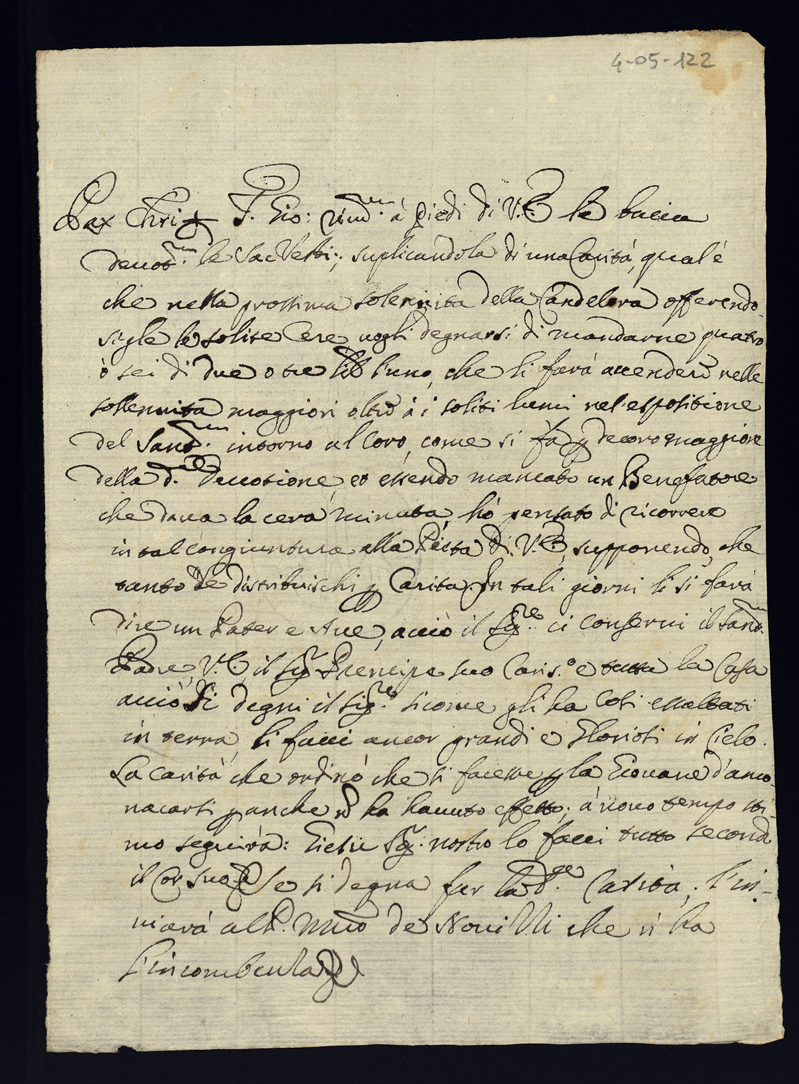 4-05-122
Pax Chri F. Gio: á Piedi di V. E. le baccia
deuot.mte le Sac Vesti, suplicandola di una Caritá, qual'é
che nella prossima solennita della Candelora offerendo-
sigle le solite Cere uogli degnarsi di mandarne quatro
ó sei di due o tre lib l'una, che si fará accendere nelle
sollennita maggiori oltre á i soliti lumi nel espositione
del Sant.mo intorno al Coro, come si fa p decoro maggiore
della d. Deuotione, et essendo mancato un Benefatore
che daua la cera minuta, hó pensato di ricorrere
in tal congiuntura alla Pietá di V. E. supponendo, che
tanto de distribuischi p Carita. In tali giorni li si fará
dire un Pater e Aue, acció il Sig.re ci conserui il Sant.
Padre, V. E. il Sig. Prencipe suo Caris.o e tutta la Casa
acció si degni il Sig.re sicome gli ha Cosi essaltati
in terra, li facci ancor grandi e Gloriosi in Cielo.
La caritá che ordinó che si facesse p la Giouane d'amo-
nacarsi p anche ha hauuto effetto. á nouo tempo sti-
mo seguirá: Giesu Sig. nostro lo facci tutto second
il Cor suo Se si degna far la d. Caritá, l'in-
uiará al P. de Nouitii che n'ha
l'incombenza